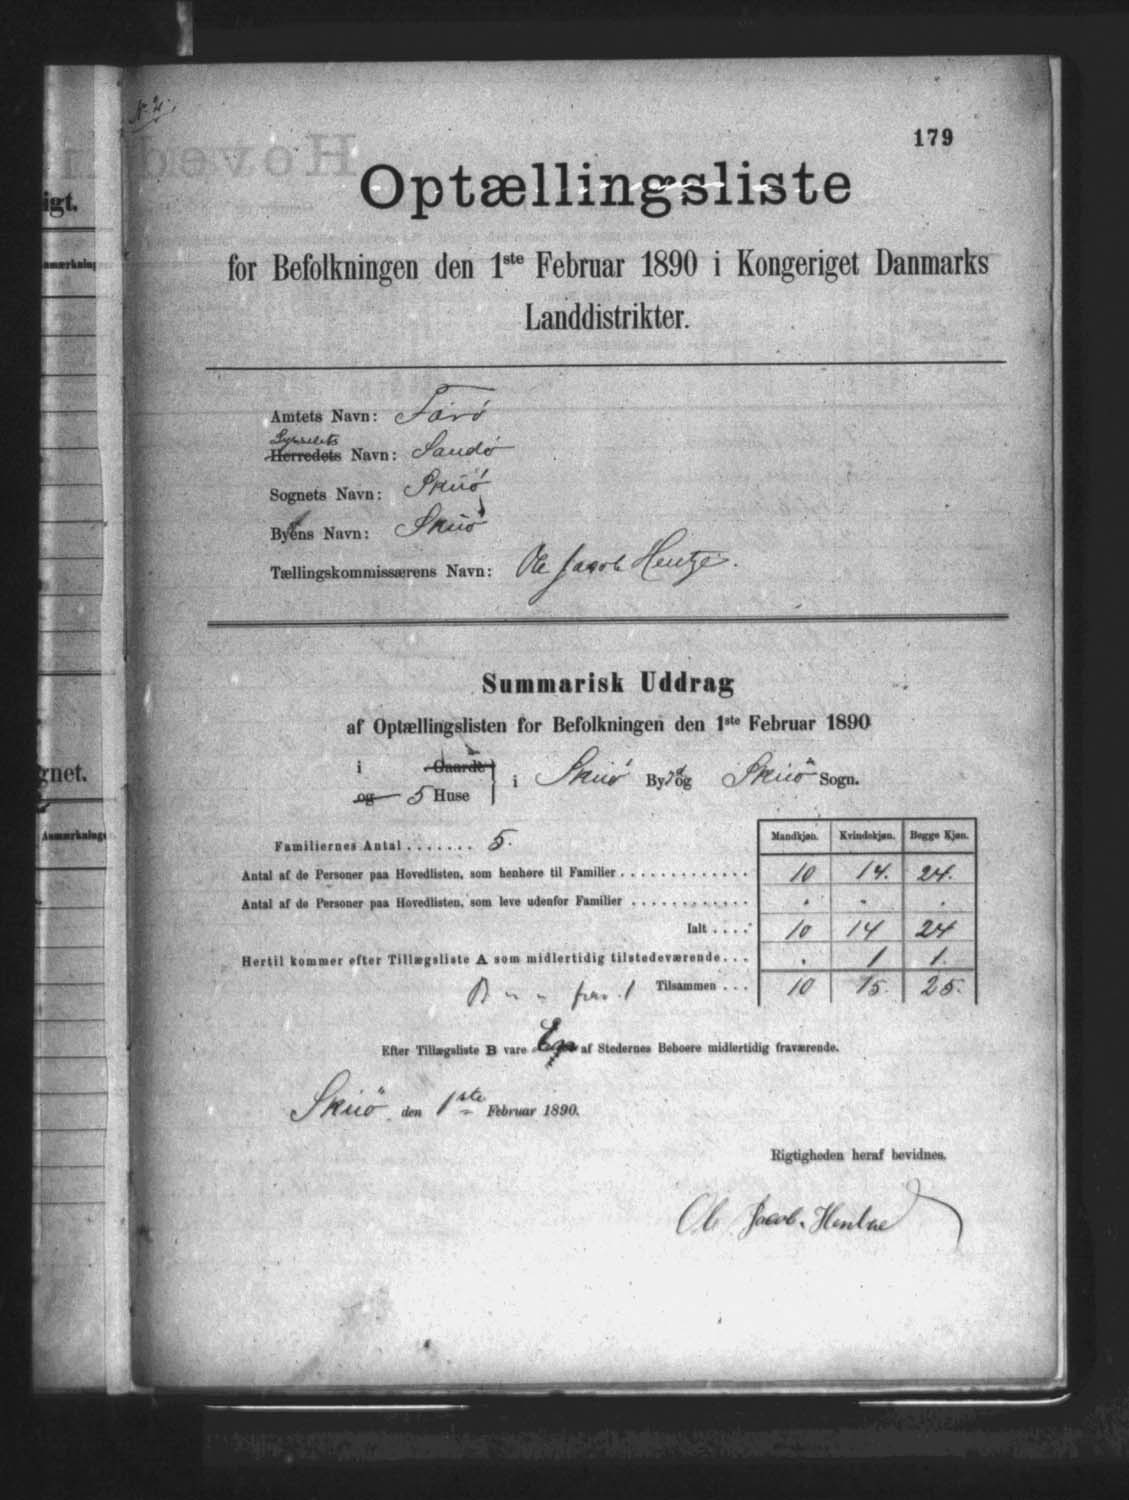 N. 2.
179
Optællingsliste
for Befolkningen den 1ste Februar 1890 i Kongeriget Danmarks
Landdistrikter.
Amtets Navn: Færö
Sysselets
Herredets Navn: Sandö
Sognets Navn: Skuö
Byens Navn: Skuö
Tællingskommissærens Navn: Ole Jacob Hentze.
Summarisk Uddrag
af Optællingslisten for Befolkningen den 1ste Februar 1890
i Gaarde
og 5 Huse
i Skuö Bygd og Skuö Sogn.
Mandkjøn. Kvindekjøn. Begge Kjøn.
Familiernes Antal ....... 5.
Antal af de Personer paa Hovedlisten, som henhøre til Familier ............. 10 14. 24.
Antal af de Personer paa Hovedlisten, som leve udenfor Familier ............ . . .
Ialt .... 10 14 24
Hertil kommer efter Tillægsliste A som midlertidig tilstedeværende... . 1 1.
B " " frav. 1 Tilsammen ... 10 15. 25.
Efter Tillægsliste B vare En af Stedernes Beboere midlertidig fraværende.
Skuö den 1ste Februar 1890.
Rigtigheden heraf bevidnes.
Ole Jacob. Hentze
igt.
Anmærkning
gnet.
Anmærkninge